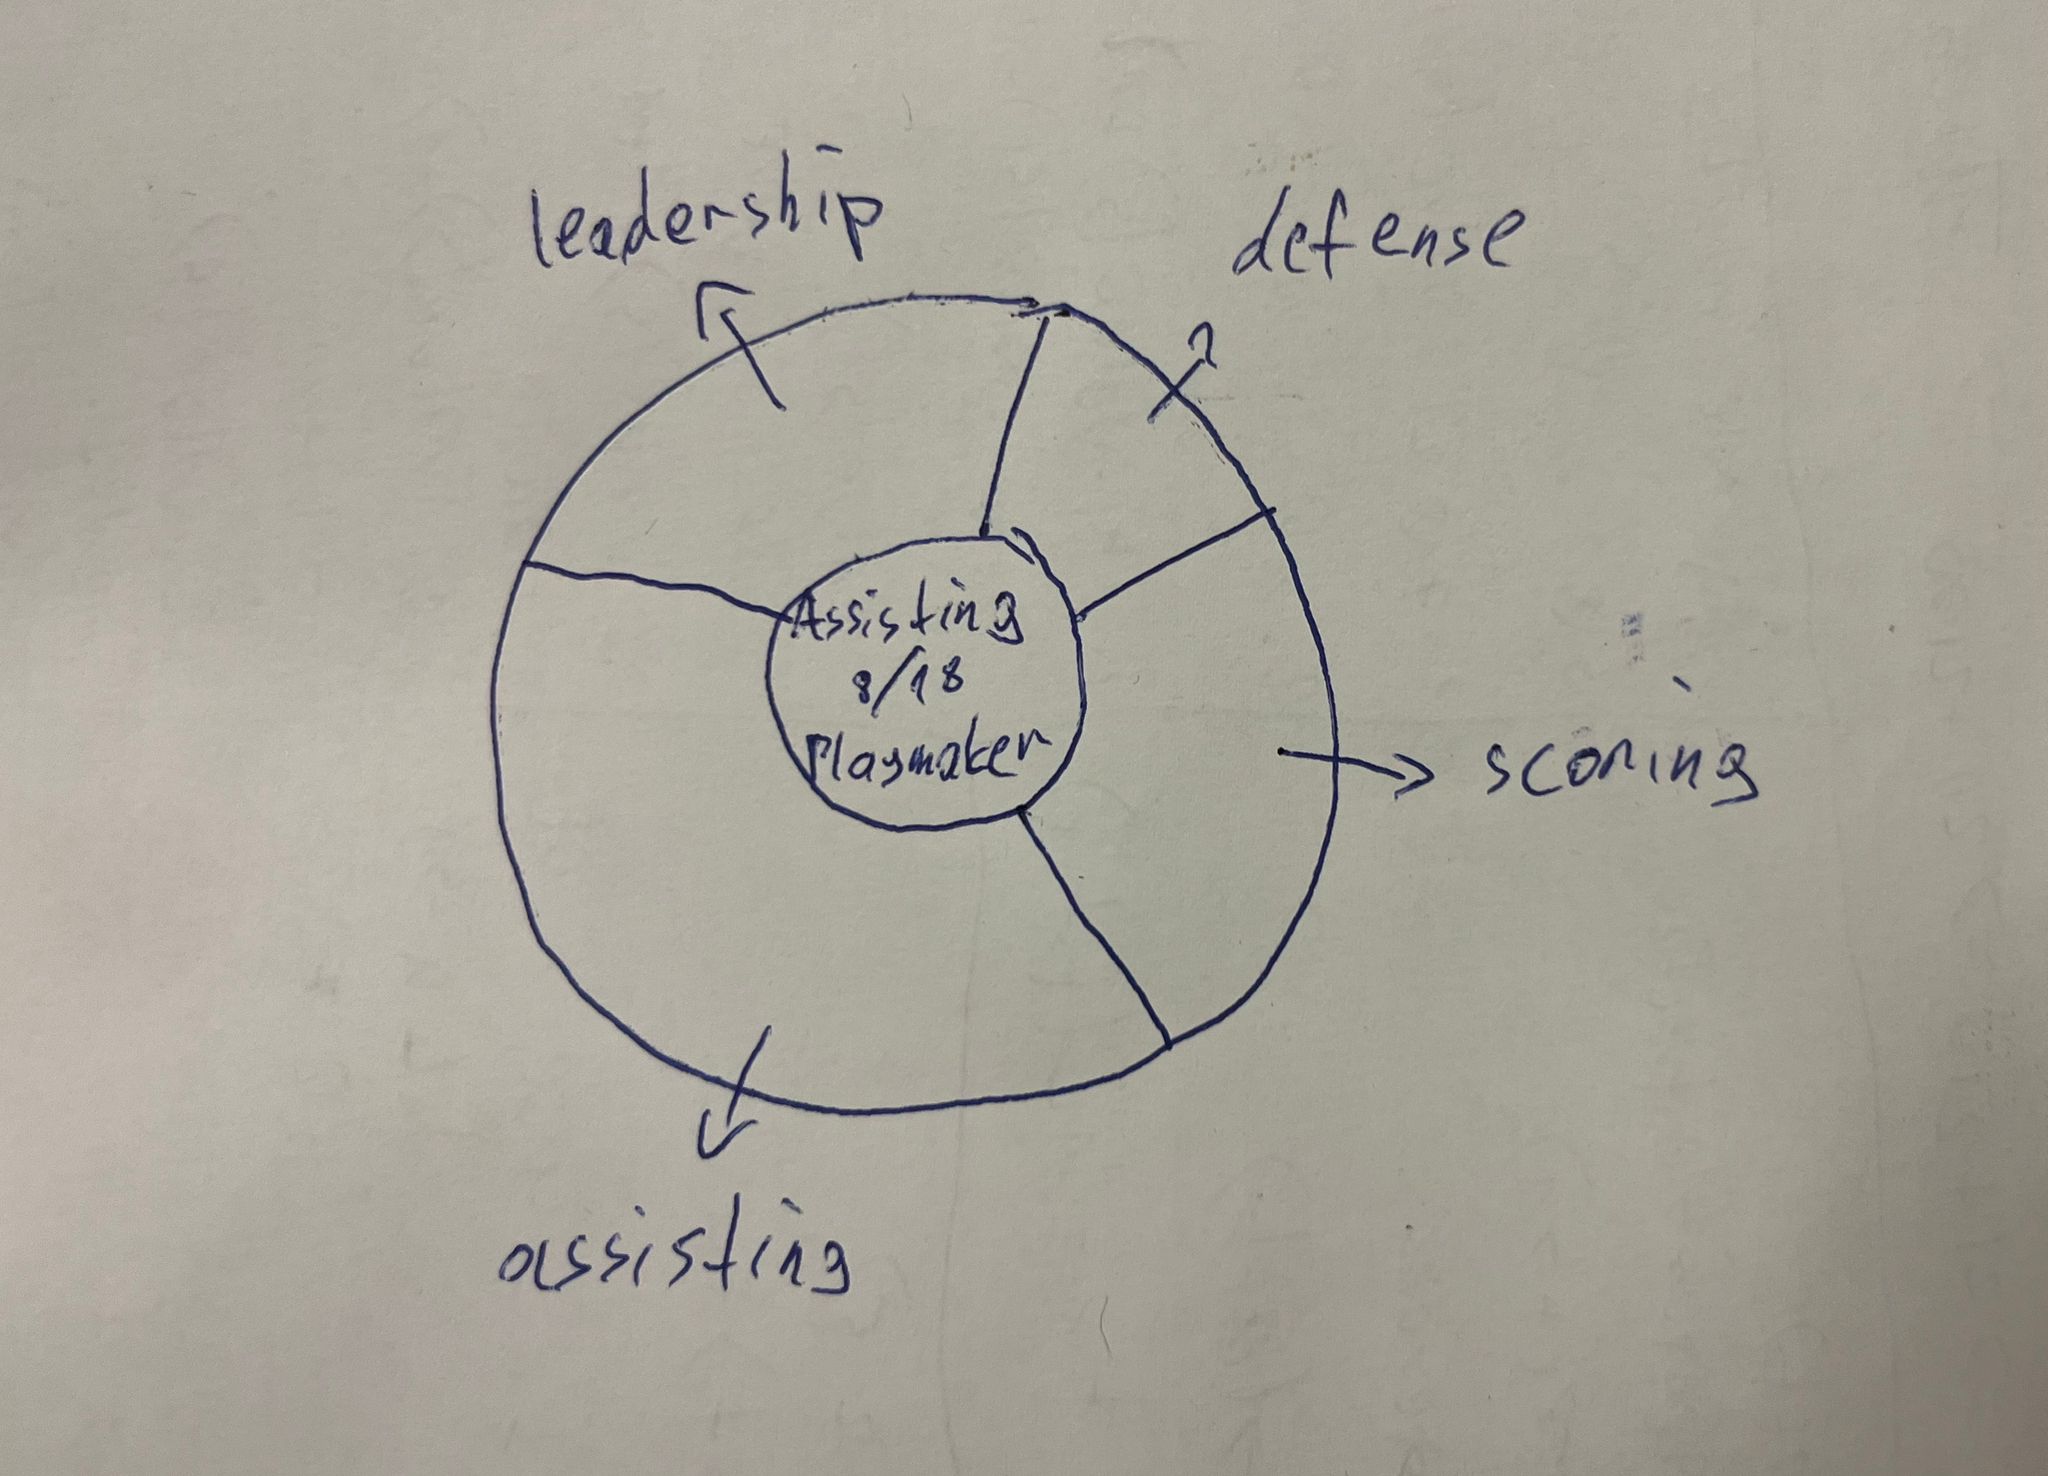 leadership
defense
Assisting
8/18
Playmaker
scoring
assisting